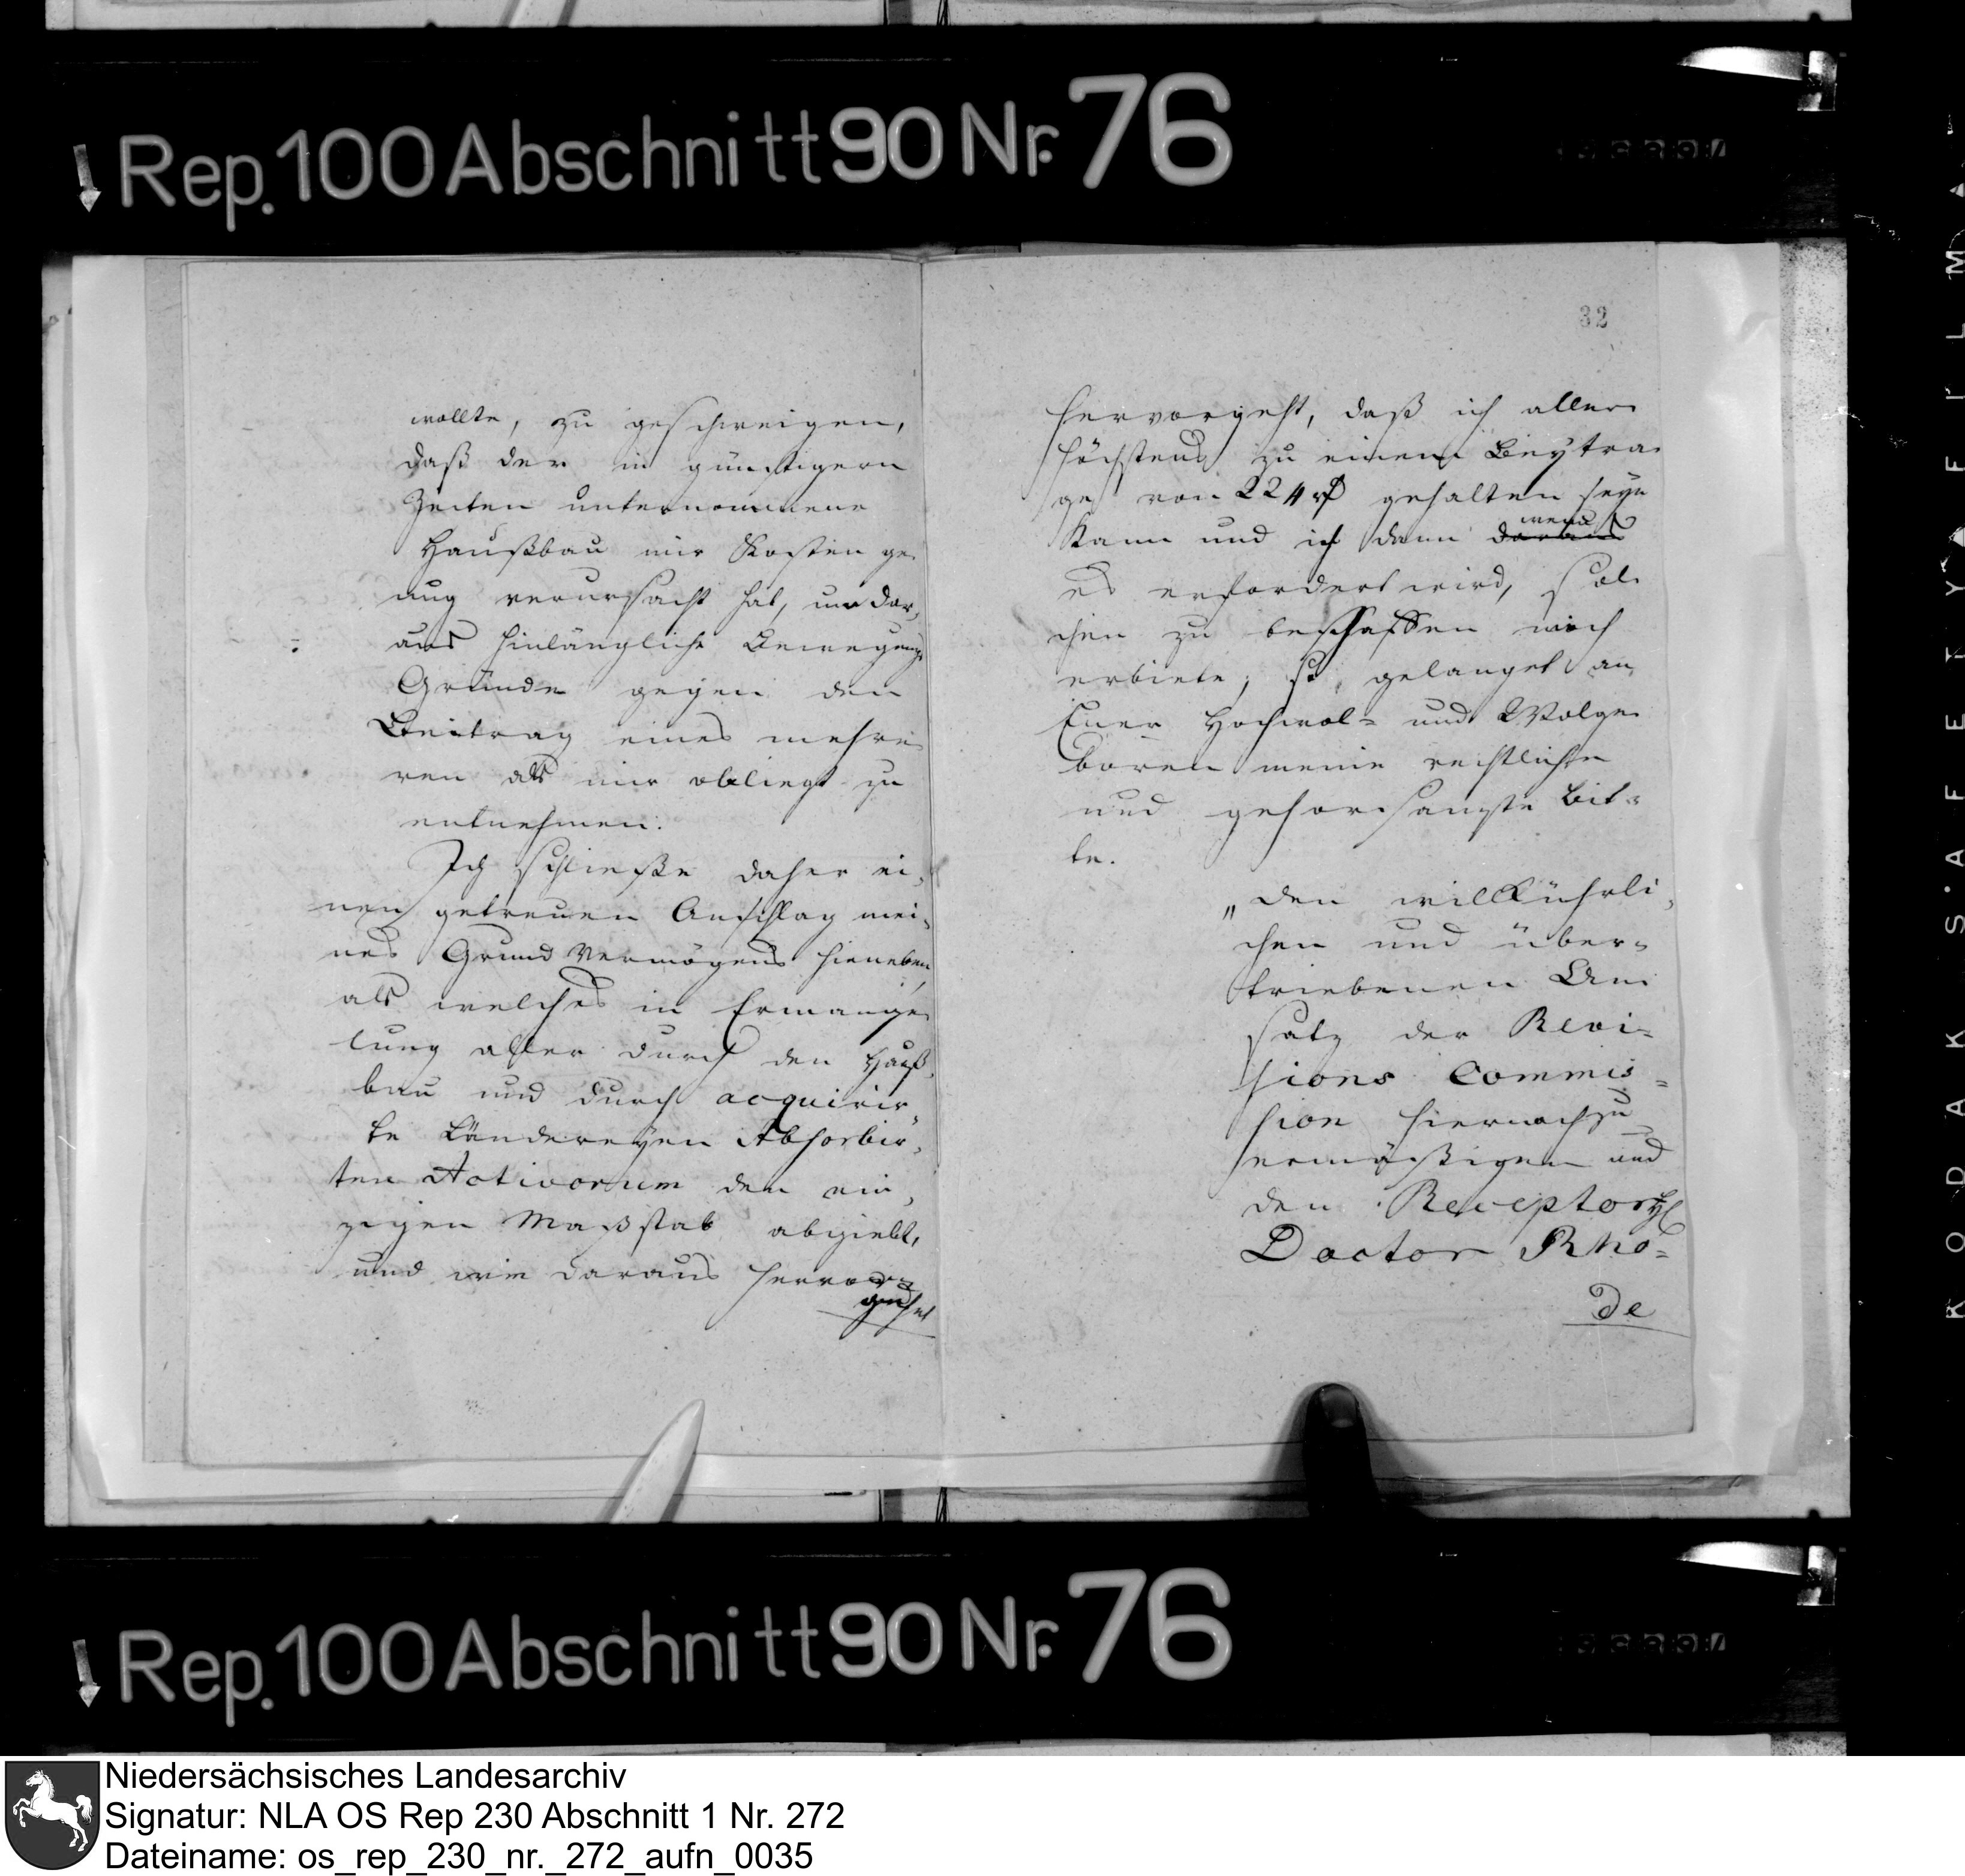 Rep. 100 Abschnitt 90 Nr. 76
wollte, zu geschweigen,
daß der in günstigern
Zeiten unternommene
Haußbau mir Kosten ge
nug verursacht hat, um dar,
aus hinlängliche Bewegungs
Gründe gegen den
Beitrag eines mehre
ren als mir obliegt zu
entnehmen.
Ich schließe daher ei,
nen getreuen Anschlag mei,
nes Grund Vermögens hieneben,
als welches in Ermange
lung aller durch den Hauß,
bau und durch acquirir,
te Ländereyen Absorbir,
ten Activorum den ein,
zigen Maßstab abgiebt,
und wie daraus hervor
gehet
32
hervorgeht, daß ich aller
höchstens zu einem Beytra
ge von 224 rtß gehalten seyn
kann und ich dann
wenn
es erfordert wird, sol
chen zu beschaffen mich
erbiete, so gelanget an
Euer Hochwol- und Wolge
boren meine rechtliche
und gehorsamste Bit-
te.
„den willkührli,
chen und über-
triebenen An
satz der Revi-
sions Commis-
sion hiernach zu
ermäßigen und
den Receptor H
Doctor Rho-
de
Rep. 100 Abschnitt 90 Nr. 76
KODAK SAFETY FILM
Niedersächsisches Landesarchiv
Signatur: NLA OS Rep 230 Abschnitt 1 Nr. 272
Dateiname: os_rep_230_nr._272_aufn_0035